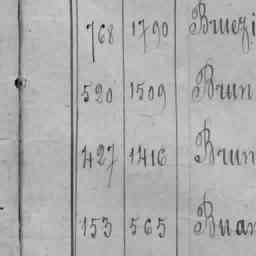 768 1790 Bruezi
520 1509 Brun
427 1416 Brun
153 565 Buan